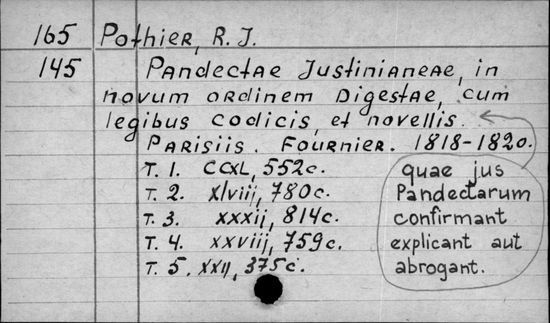 165 Pothier, R. J.
145 Pandectae Justinianeae, in
novum ordinem Digestae, cum
legibus codicis, et novellis.
Parisiis. Fournier. 1818-1820.
T. 1. CCXL, 552c.
T. 2. Xlviij, 780c.
T. 3. xxxij, 814c.
T. 4. xxviij, 759c.
T. 5. XXIJ, 375c.
quae jus
Pandectarum
confirmant
explicant aut
abrogant.